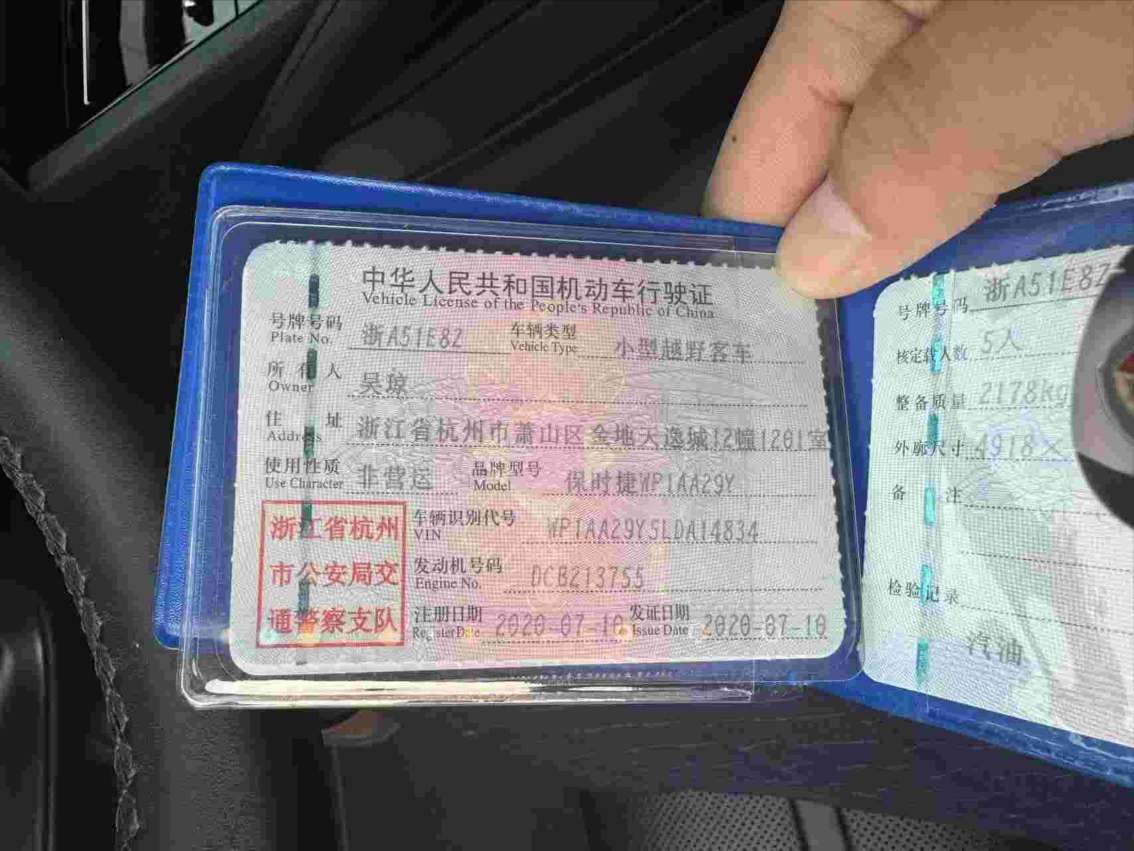 中华人民共和国机动车行驶证
Vehicle License of the People's Republic of China
号牌号码 浙A51E8Z 车辆类型 小型越野客车
Plate No. Vehicle Type
所有人 吴琼
Owner
住址 浙江省杭州市萧山区金地天逸城12幢1201室
Address
使用性质 非营运 品牌型号 保时捷WP1AA29Y
Use Character Model
浙江省杭州
市公安局交
通警察支队
车辆识别代号 WP1AA29Y5LDA14834
VIN
发动机号码 DCB213755
Engine No.
注册日期 2020-07-10 发证日期 2020-07-10
Register Date Issue Date
号牌号码 浙A51E8Z
核定载人数 5人
整备质量 2178kg
外廓尺寸 4918×
备注
检验记录
汽油